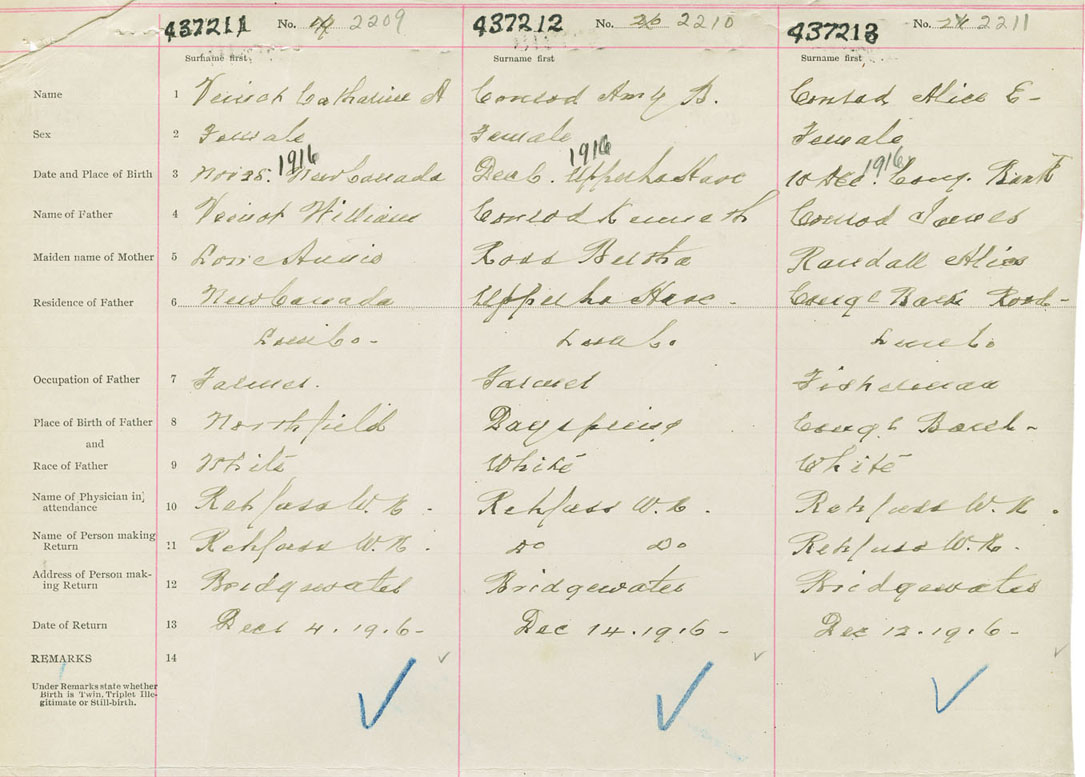 437211 No. 2209 437212 No. 26 2210 437213 No. 2211
Surname first. Surname first Surname first
Name 1 Veinot Catharine A Conrod Amy B. Conrad Alice E-
Sex 2 Female Female Female
1916 1916 1916
Date and Place of Birth 3 Nov 25. New Canada Dec 6. Upper La Have 10 Dec.
Name of Father 4 Veinot William Conrod Kenneth Conrod James
Maiden name of Mother 5 Annie Ross Bertha Randall Alice
Residence of Father 6 New Canada Upper La Have - Road -
Co - Co Co
Occupation of Father 7 Farmer. Farmer Fisherman
Place of Birth of Father 8 Northfield Dayspring
and
Race of Father 9 White White White
Name of Physician in attendance 10 Rehfuss W.N. Rehfuss W.N. Rehfuss W.N.
Name of Person making Return 11 Rehfuss W.N. Do Do Rehfuss W.N.
Address of Person making Return 12 Bridgewater Bridgewater Bridgewater
Date of Return 13 Dec 4.19.6- Dec 14.19.6- Dec 12.19.6-
REMARKS 14
Under Remarks state whether
Birth is Twin, Triplet Ille-
gitimate or Still-birth.